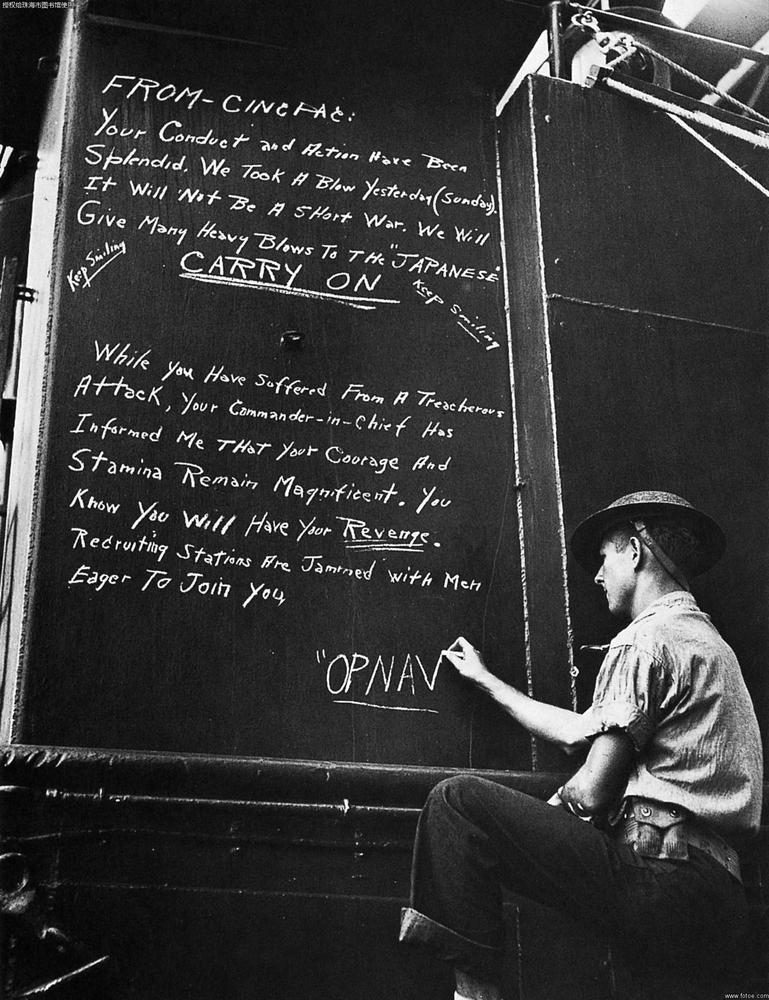 授权给珠海市图书馆使用
FROM- CINCPAC:
Your Conduct and Action Have Been
Splendid. We Took A Blow Yesterday (Sunday).
It Will Not Be A SHort War. We Will
Give Many Heavy Blows To THe "JAPANESE"
Keep Smiling
CARRY ON
Keep Smiling
While You Have Suffered From A Treacherous
Attack, Your Commander-in-Chief Has
Informed Me THat Your Courage And
Stamina Remain Magnificent. You
Know You Will Have Your Revenge.
Recruiting Stations Are Jammed with Men
Eager To Join You,
"OPNAV
www.fotoe.com